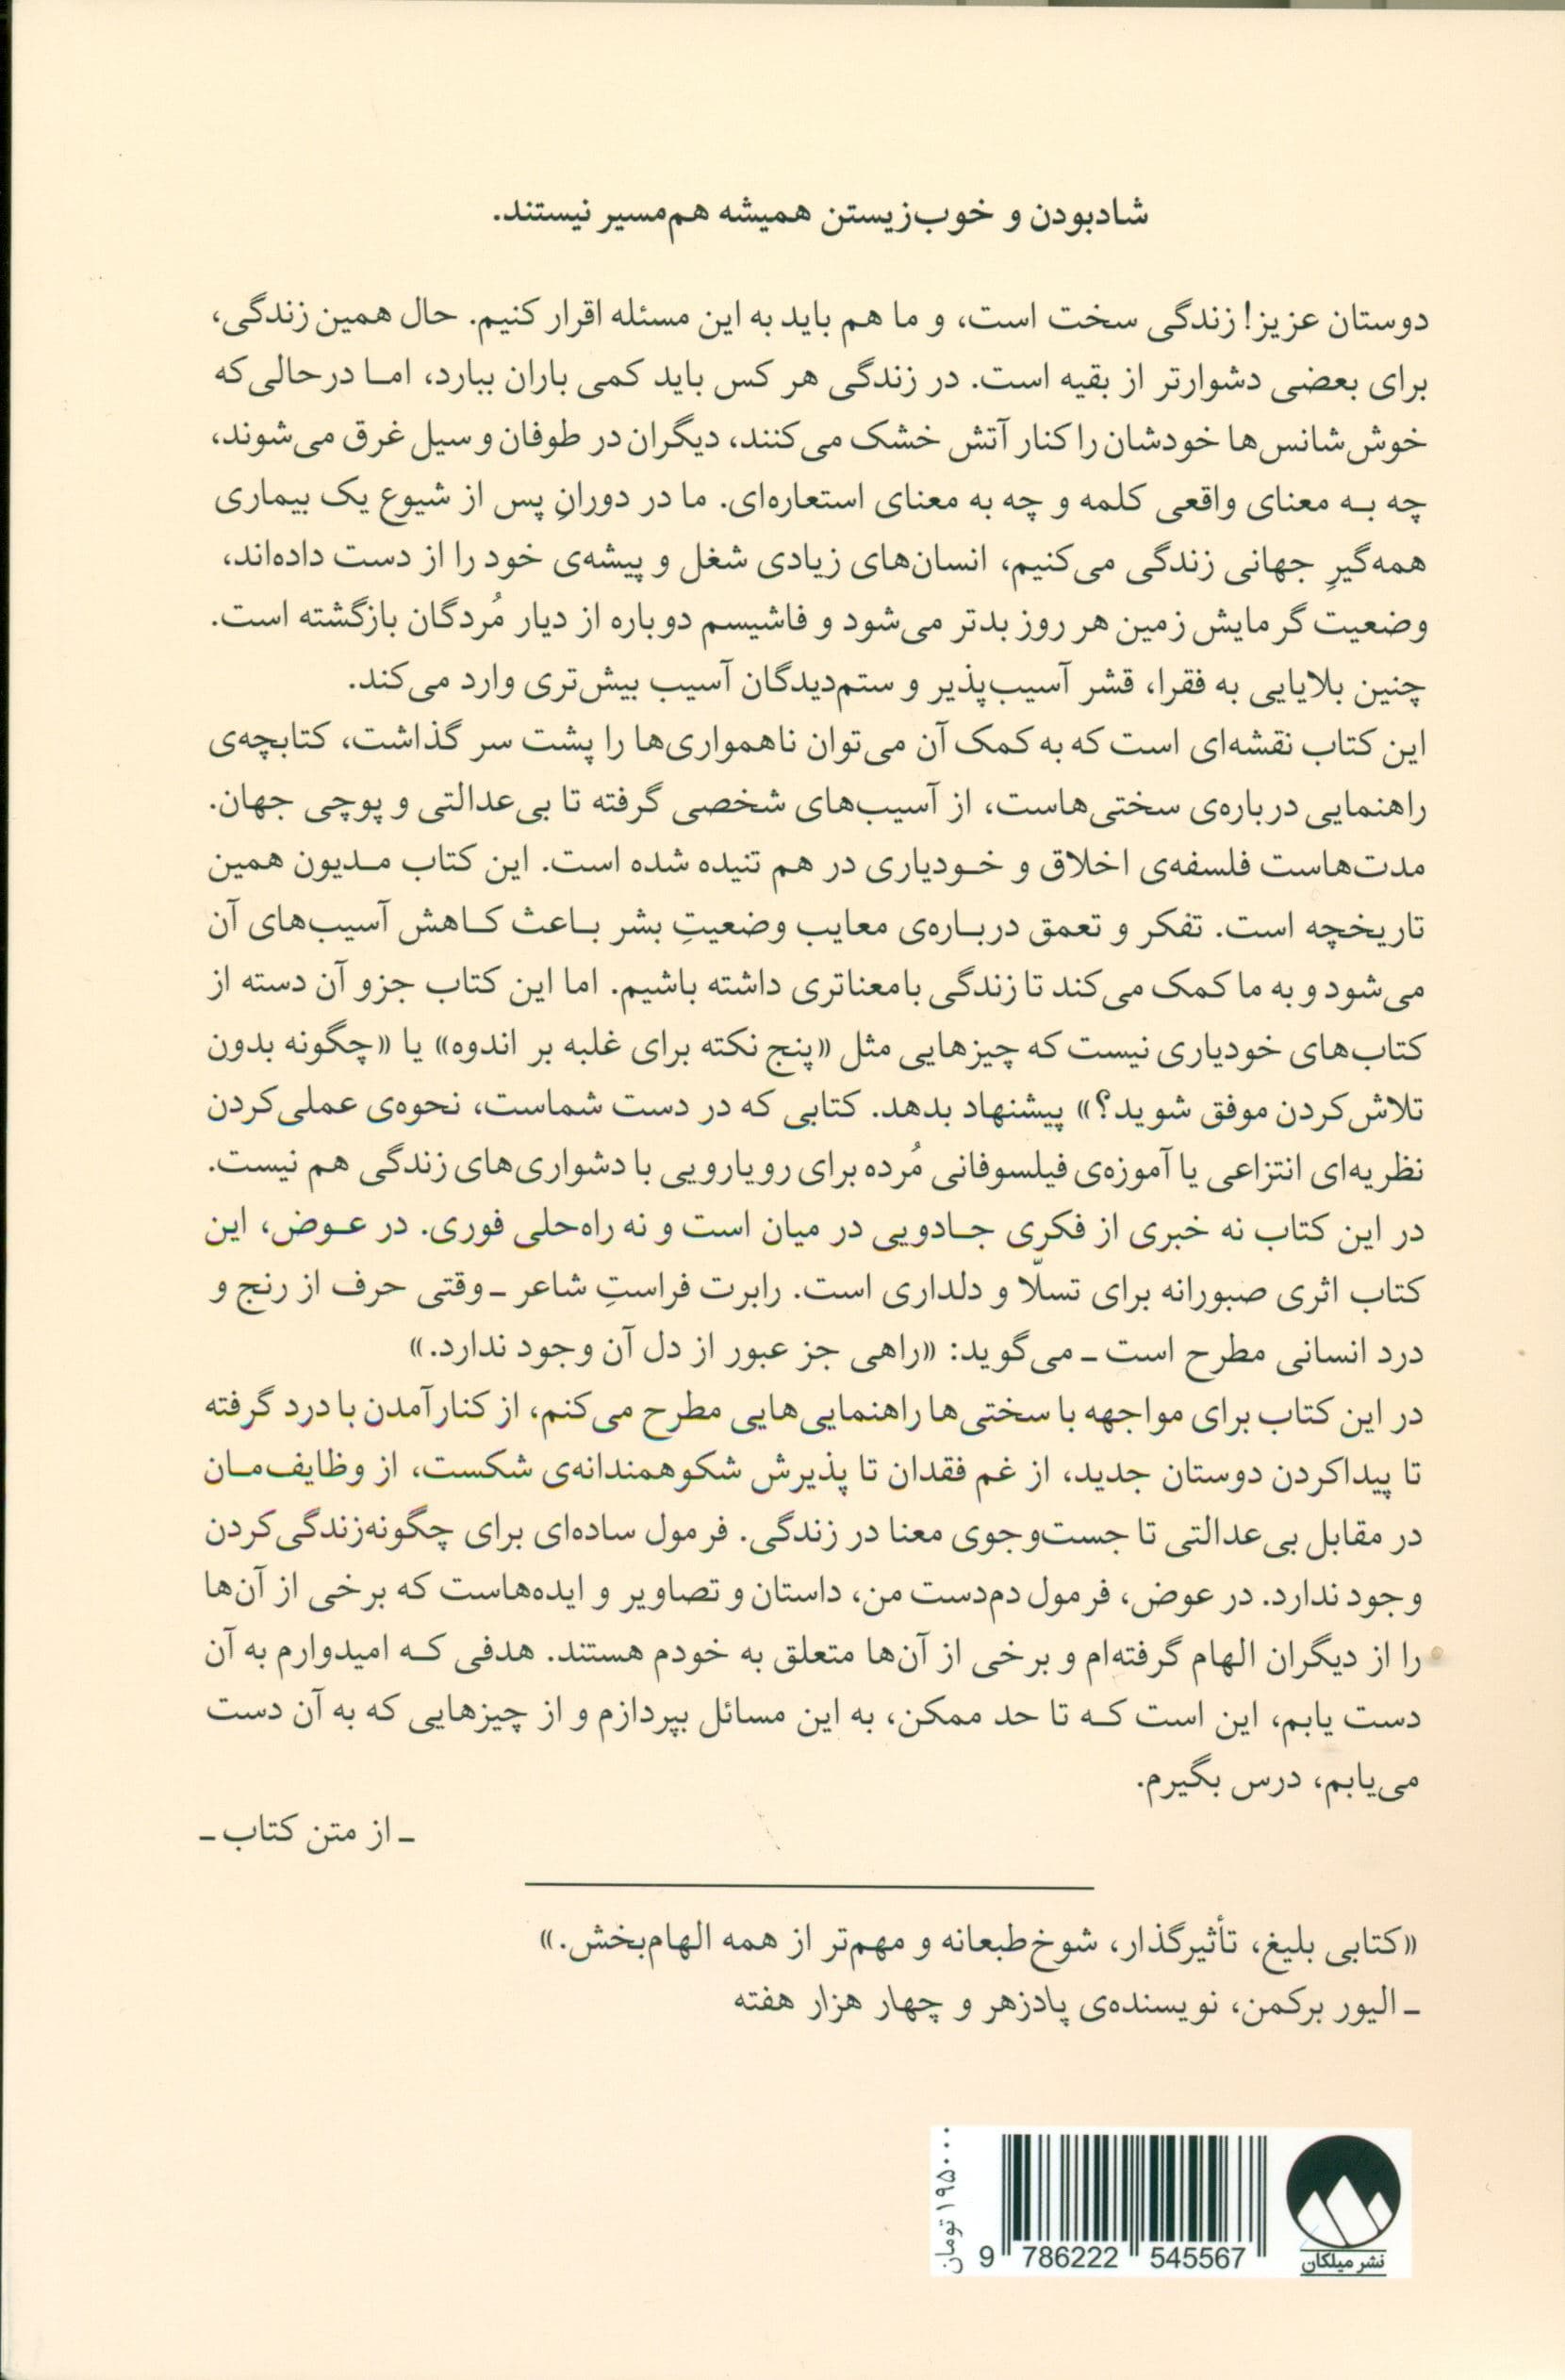 شادبودن و خوب‌زیستن همیشه هم‌مسیر نیستند.
دوستان عزیز! زندگی سخت است، و ما هم باید به این مسئله اقرار کنیم. حال همین زندگی،
برای بعضی دشوارتر از بقیه است. در زندگی هر کس باید کمی باران ببارد، امـا درحالی‌که
خوش‌شانس‌ها خودشان را کنار آتش خشک می‌کنند، دیگران در طوفان و سیل غرق می‌شوند،
چه بـه معنای واقعی کلمه و چه به معنای استعاره‌ای. ما در دورانِ پس از شیوع یک بیماری
همه‌گیرِ جهانی زندگی می‌کنیم، انسان‌های زیادی شغل و پیشه‌ی خود را از دست داده‌اند،
وضعیت گرمایش زمین هر روز بدتر می‌شود و فاشیسم دوباره از دیار مُردگان بازگشته است.
چنین بلایایی به فقرا، قشر آسیب‌پذیر و ستم‌دیدگان آسیب بیش‌تری وارد می‌کند.
این کتاب نقشه‌ای است که به کمک آن می‌توان ناهمواری‌ها را پشت سر گذاشت، کتابچه‌ی
راهنمایی درباره‌ی سختی‌هاست، از آسیب‌های شخصی گرفته تا بی‌عدالتی و پوچی جهان.
مدت‌هاست فلسفه‌ی اخلاق و خـودیاری در هم تنیده شده است. این کتاب مـدیون همین
تاریخچه است. تفکر و تعمق دربـاره‌ی معایب وضعیتِ بشر بـاعث کـاهش آسیب‌های آن
می‌شود و به ما کمک می‌کند تا زندگی بامعناتری داشته باشیم. اما این کتاب جزو آن دسته از
کتاب‌های خودیاری نیست که چیزهایی مثل «پنج نکته برای غلبه بر اندوه» یا «چگونه بدون
تلاش‌کردن موفق شوید؟» پیشنهاد بدهد. کتابی که در دست شماست، نحوه‌ی عملی‌کردن
نظریه‌ای انتزاعی یا آموزه‌ی فیلسوفانی مُرده برای رویارویی با دشواری‌های زندگی هم نیست.
در این کتاب نه خبری از فکری جـادویی در میان است و نه راه‌حلی فوری. در عـوض، این
کتاب اثری صبورانه برای تسلّا و دلداری است. رابرت فراستِ شاعر ـ وقتی حرف از رنج و
درد انسانی مطرح است ـ می‌گوید: «راهی جز عبور از دل آن وجود ندارد.»
در این کتاب برای مواجهه با سختی‌ها راهنمایی‌هایی مطرح می‌کنم، از کنارآمدن با درد گرفته
تا پیداکردن دوستان جدید، از غم فقدان تا پذیرش شکوهمندانه‌ی شکست، از وظایف‌مـان
در مقابل بی‌عدالتی تا جست‌وجوی معنا در زندگی. فرمول ساده‌ای برای چگونه‌زندگی‌کردن
وجود ندارد. در عوض، فرمول دم‌دست من، داستان و تصاویر و ایده‌هاست که برخی از آن‌ها
را از دیگران الهام گرفته‌ام و برخی از آن‌ها متعلق به خودم هستند. هدفی کـه امیدوارم به آن
دست یابم، این است کـه تا حد ممکن، به این مسائل بپردازم و از چیزهایی که به آن دست
می‌یابم، درس بگیرم.
ـ از متن کتاب ـ
«کتابی بلیغ، تأثیرگذار، شوخ‌طبعانه و مهم‌تر از همه الهام‌بخش.»
ـ الیور برکمن، نویسنده‌ی پادزهر و چهار هزار هفته
۱۹۵۰۰۰ تومان
9 786222 545567
نشر میلکان